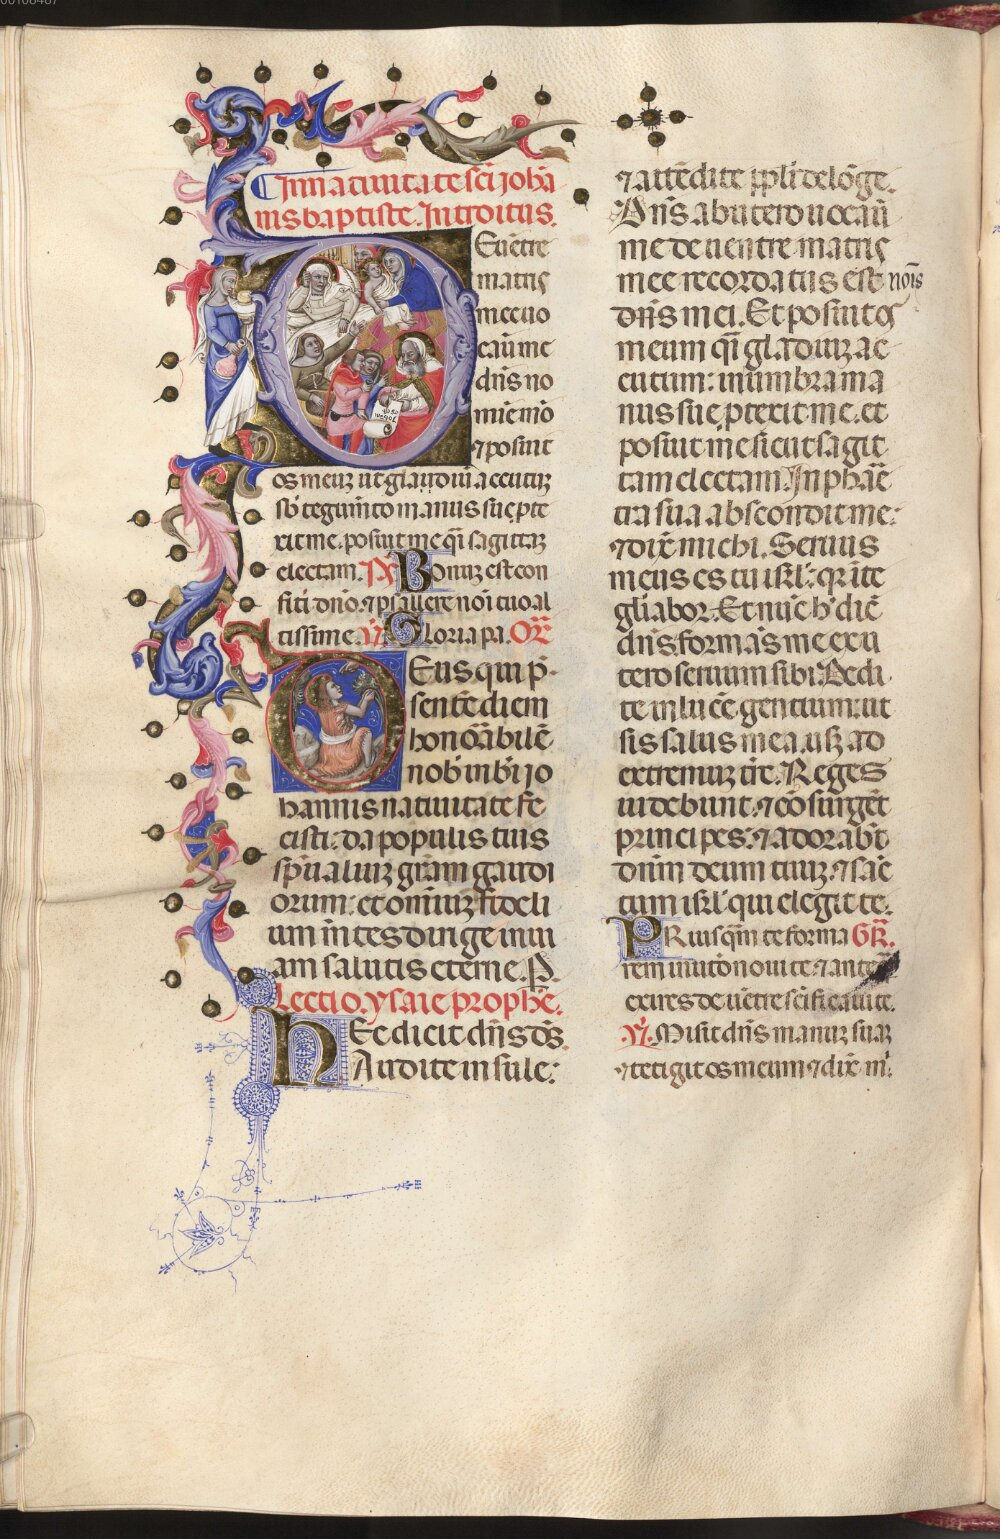 00108467
In natiuitate sci ioha
nis baptiste. Introitus.
De uẽtre
matris
mee uo
cauit me
dñs no
mĩe mõ
⁊ posuit
os meuz ut gladiũ acutuz
sb̃ tegumẽto manus sue pte
xit me. posuit me q̃i sagittaz
electam. Bonuz est con
fiteri dño. ⁊ psallere noĩ tuo al
tissime. Gloria pa. Or̃
Deus qui p̃
sentẽ diem
honorabilẽ
nob̃ in bt̃i io
hannis natiuitate fe
cisti: da populis tuis
spũaliuz gr̃am gaudi
orum: et omiũz fideli
um mẽtes dirige in ui
am salutis eterne. P.
Lectio ysaie prophẽ.
Hec dicit dñs ds̃
Audite insule:
⁊ attẽdite ppl̃i de lõge.
Dñs ab utero uocau̅
me de uentre matris
mee recordatus est nois̃
dñs mei. Et posuit os
meum q̃i gladiuz ac
cutum: in umbra ma
nus sue ptexit me. et
posuit me sicut sagit
tam electam. In phare
tra sua abscondit me:
⁊ dix̃ michi. Seruus
meus es tu isrl̃: q̃r in te
gl̃iabor. Et nũc h̃ dic̃
dñs formãs me ex u
tero seruum sibi. Dedi
te in lucẽ gentium: ut
sis salus mea usq̃ ad
extremuz tr̃e. Reges
uidebunt. ⁊ cõsurgẽt
principes: ⁊ adorabũt
dñm deum tuuz. ⁊ sãc
tum isrl̃ qui elegit te.
Priusq̃m te forma Gr̃.
rem in utõ noui te: ⁊ anteq̃
exires de uẽtre sc̃ificaui te.
Ṽ. Misit dñs manuz suaz
⁊ tetigit os meum ⁊ dix̃ m̃.